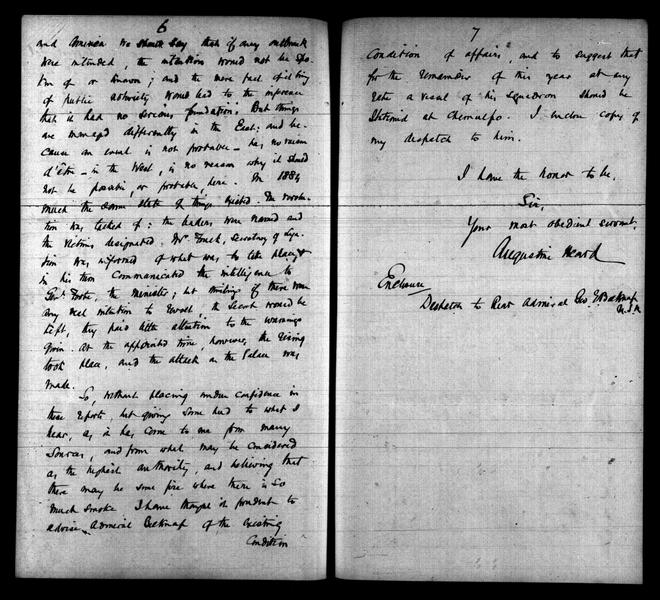 6
and America we should say that if any outbreak
were intended, the intention would not be spo-
ken of or known; and the mere fact of its being
of public notoriety would lead to the inference
that it had no serious foundation. But things
are managed differently in the East; and be-
cause an event is not probable - has no raison
d'être - in the West, is no reason why it should
not be possible, or probable, here. In 1884
much the same state of things existed. The revolu-
tion was talked of: the leaders were named and
the victims designated. Mr Foulk, Secretary of Lega-
tion was informed of what was to take place &
in his turn communicated the intelligence to
Genl. Foote, the Minister; but thinking if there were
any real intention to revolt, the secret would be
kept, they paid little attention to the warnings
given. At the appointed time, however, the rising
took place, and the attack on the Palace was
made.
So, without placing undue confidence in
these reports but giving some heed to what I
hear, as it has come to me from many
sources, and from what may be considered
as the highest authority, and believing that
there may be some fire where there is so
much smoke I have thought it prudent to
advise Admiral Belknap of the existing
condition
7
condition of affairs, and to suggest that
for the remainder of this year at any
rate a vessel of his squadron should be
stationed at Chemulpo. I enclose copy of
my despatch to him.
I have the honor to be,
Sir,
Your most obedient servant,
Augustine Heard
Enclosure
Despatch to Rear Admiral Geo. E. Belknap
U.S.N.